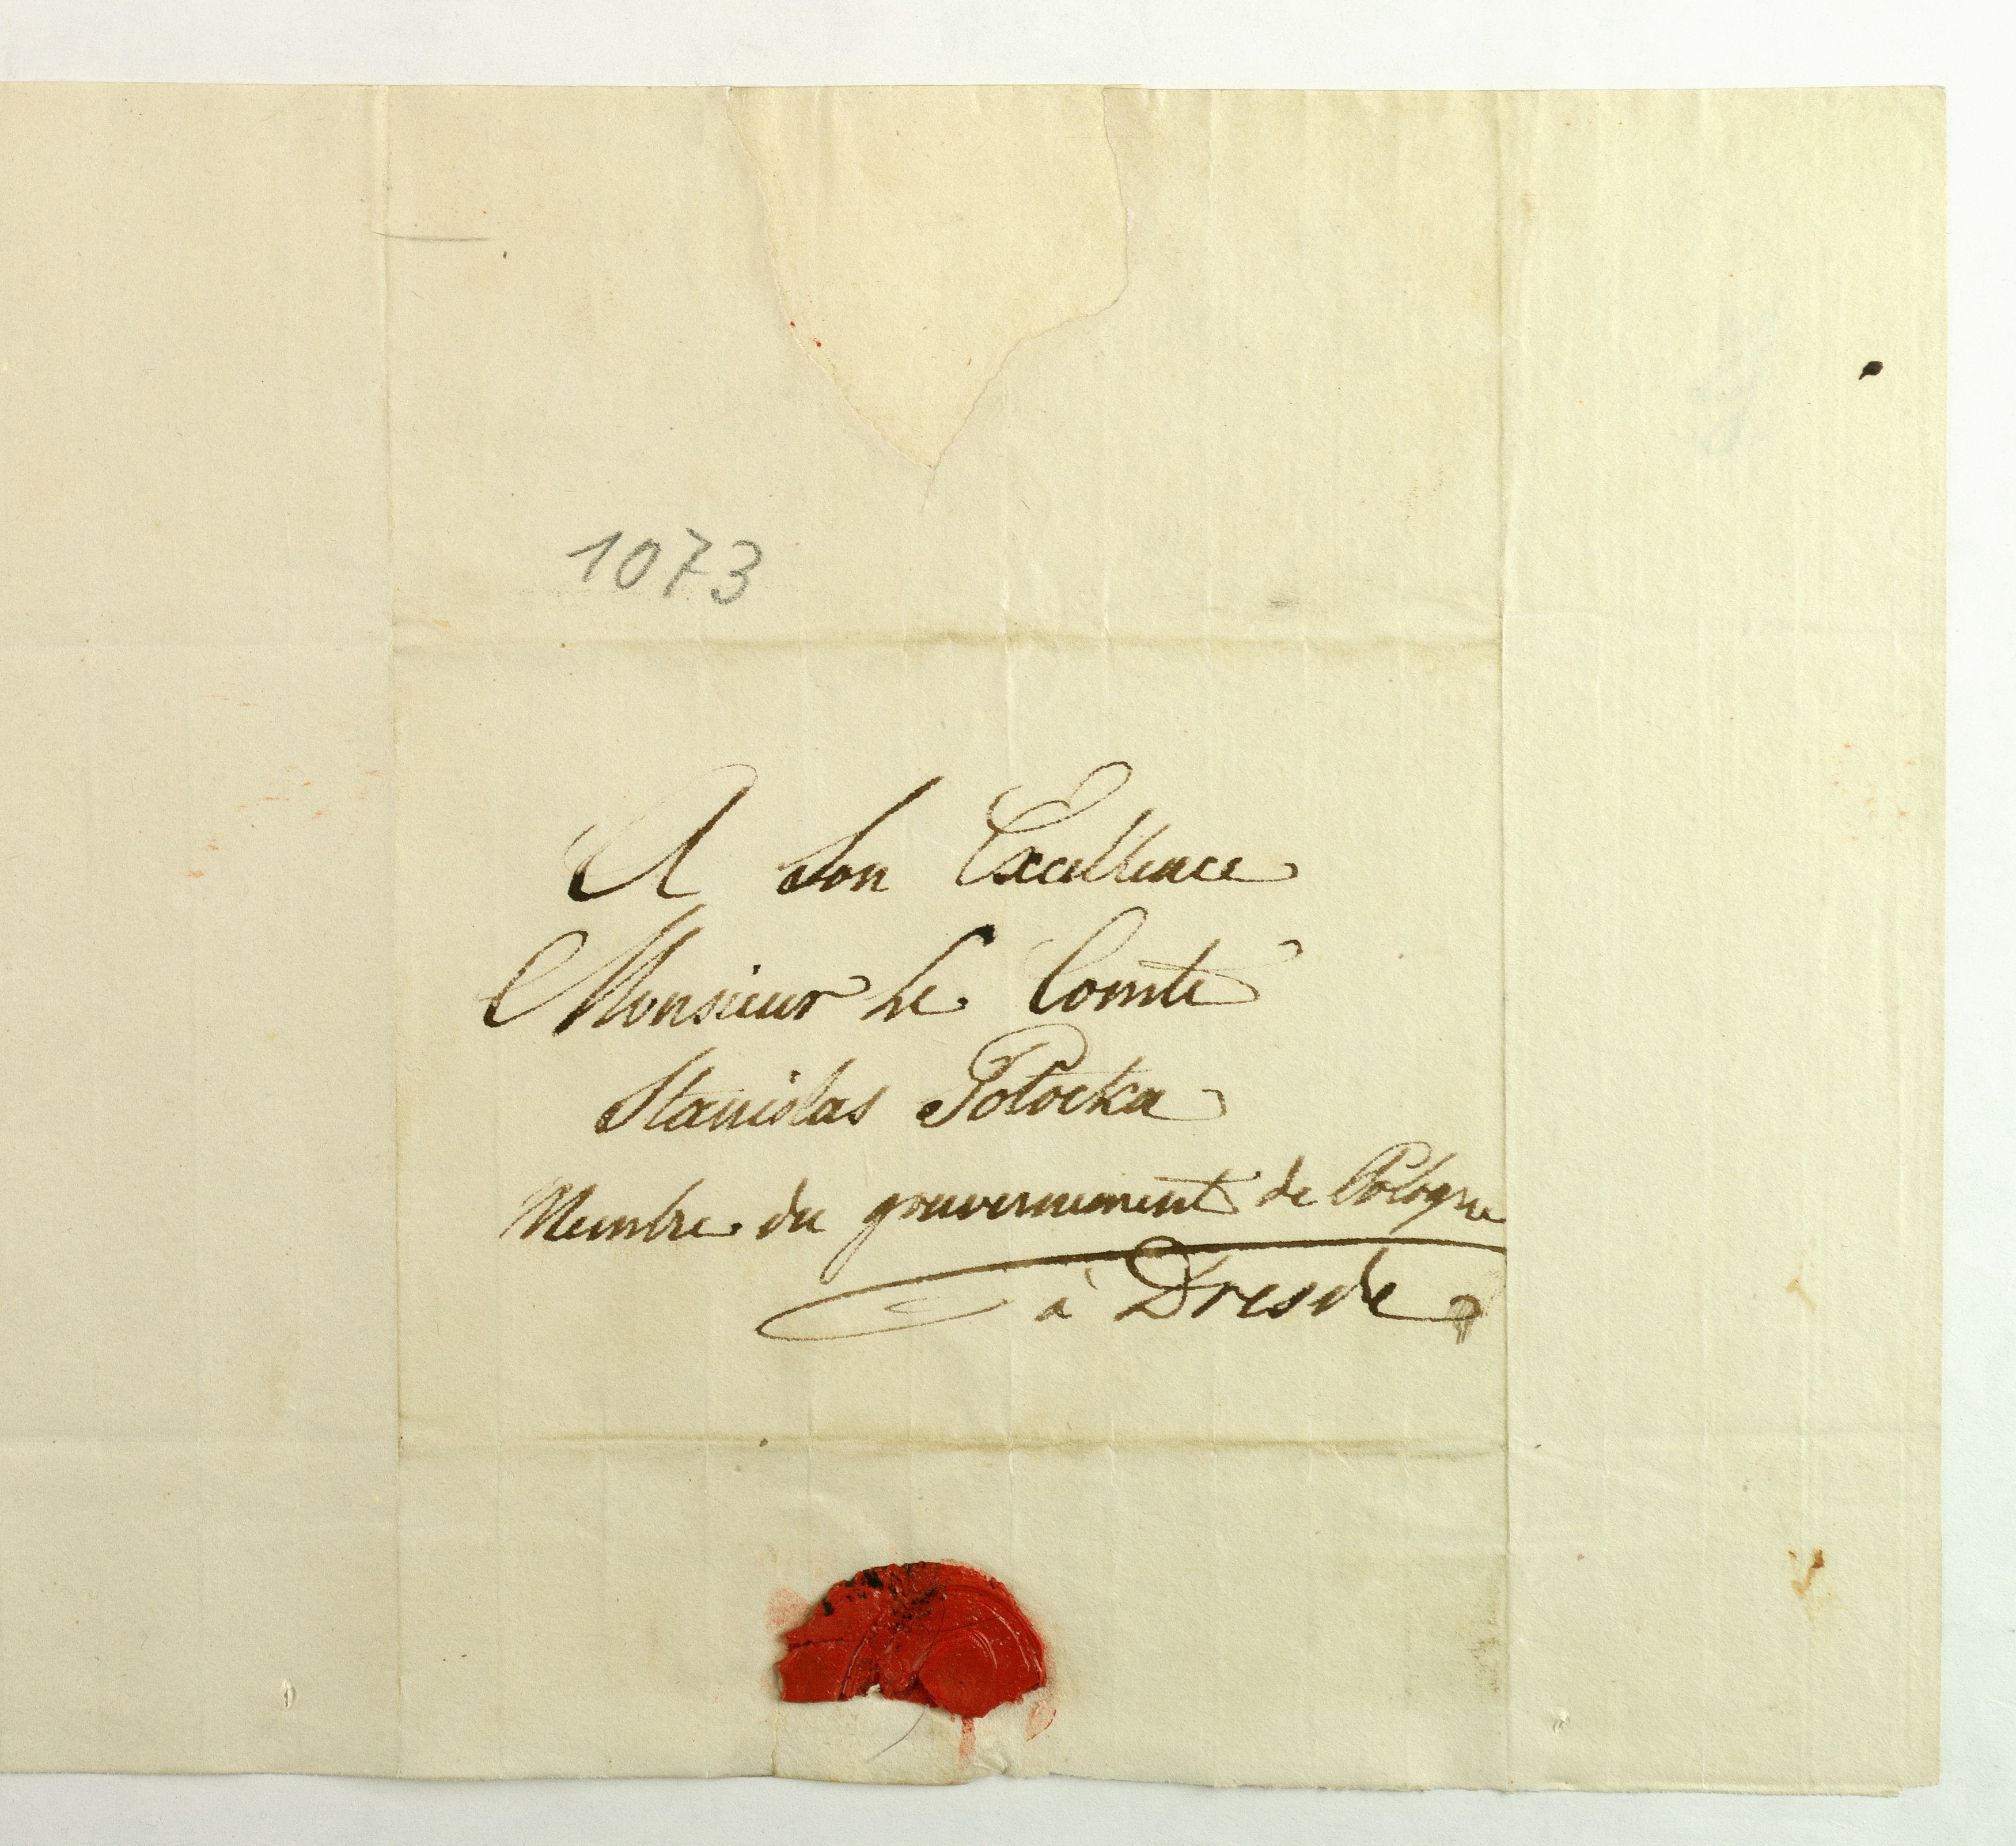 1073
A Son Excellence
Monsieur le Comte
Stanislas Potocka
Membre du gouvernement de Pologne
à Dresde